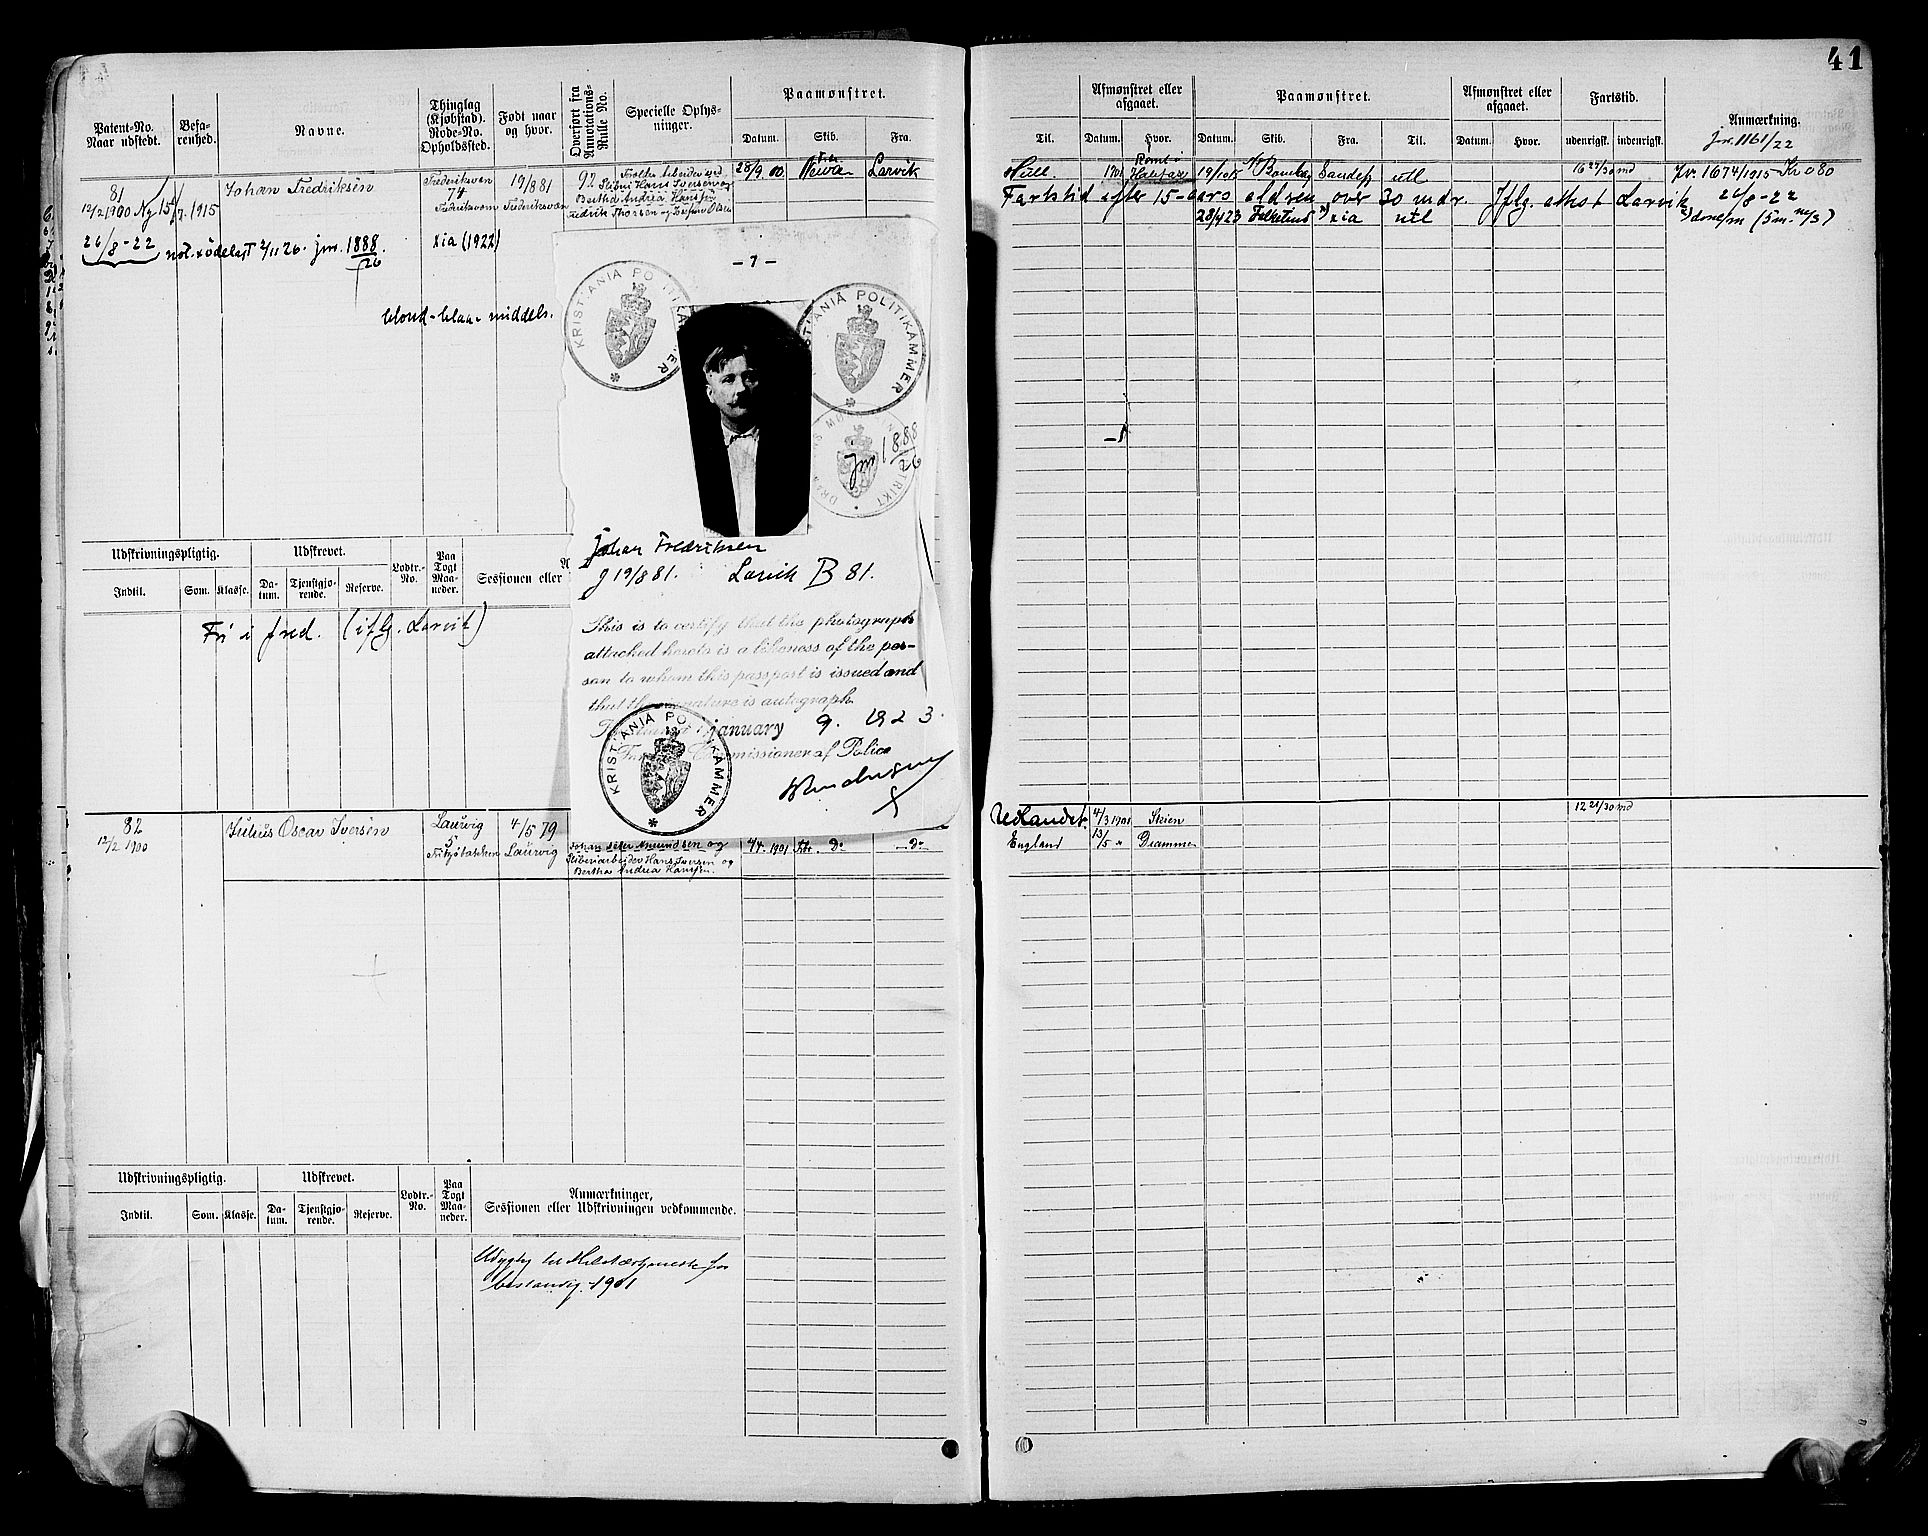 41
Patent-No.
Naar udstedt.
Befa-
renhed.
Navne.
Thinglag
(Kjøbstad).
Rode-No.
Opholdssted.
Født naar
og hvor.
Overført fra
Annotations-
Rulle No.
Specielle Oplys-
ninger.
Paamønstret.
Datum. Skib. Fra.
81
12/2 1900 Ny 15/7. 1915
Johan Fredriksen
Fredriksværn
74
19/8 81
92
28/9 00. Larvik
26/8-22
2/11 26. jnr. 1888
/26
xia (1922)
blond - blaa - middels.
- 7 -
KRISTIANIA POLITIKAMMER
KRISTIANIA POLITIKAMMER
Jnr 1888
26
Johan Fredriksen
f 19/8 81. Larvik B 81.
This is to certify that the photograph
attached hereto is a likeness of the per-
son to whom this passport is issued and
that the signature is autograph.
january 9. 1923.
Commissioner of Police
KRISTIANIA POLITIKAMMER
Udskrivningspligtig.
Udskrevet.
Lodtr.-
No.
Paa
Togt
Maa-
neder.
Sessionen eller
Indtil. Som. Klasse. Da-
tum. Tjenstgjø-
rende. Reserve.
Fri i fred. (iflg. Larvik)
82
12/2 1900
Julius Oscar Iversen
Laurvig
5
4/5 79
Laurvig
Stiberiarbeider Hans Iversen og
Bertha Andrea Hansen.
4/4. 1901 Do Do
Udskrivningspligtig.
Udskrevet.
Lodtr.-
No.
Paa
Togt
Maa-
neder.
Anmærkninger,
Sessionen eller Udskrivningen vedkommende.
Indtil. Som. Klasse. Da-
tum. Tjenstgjø-
rende. Reserve.
bestandig - 1901
Afmønstret eller
afgaaet.
Paamønstret.
Afmønstret eller
afgaaet.
Fartstid.
Anmærkning.
Til. Datum. Hvor. Datum. Skib. Fra. Til. Datum. Hvor. udenrigsk. indenrigsk.
Jnr. 1161/22
Hull. 1901 utl 16 27/30 md Jr. 1674/1915 Kr 0 80
Fartstid efter 15-aars alderen over 30 mdr. Iflg. attest Larvik 26/8-22
28/4 23 xia utl
Udlandet. 4/3 1901 Skien 12 21/30 md
England 13/5 " Drammen